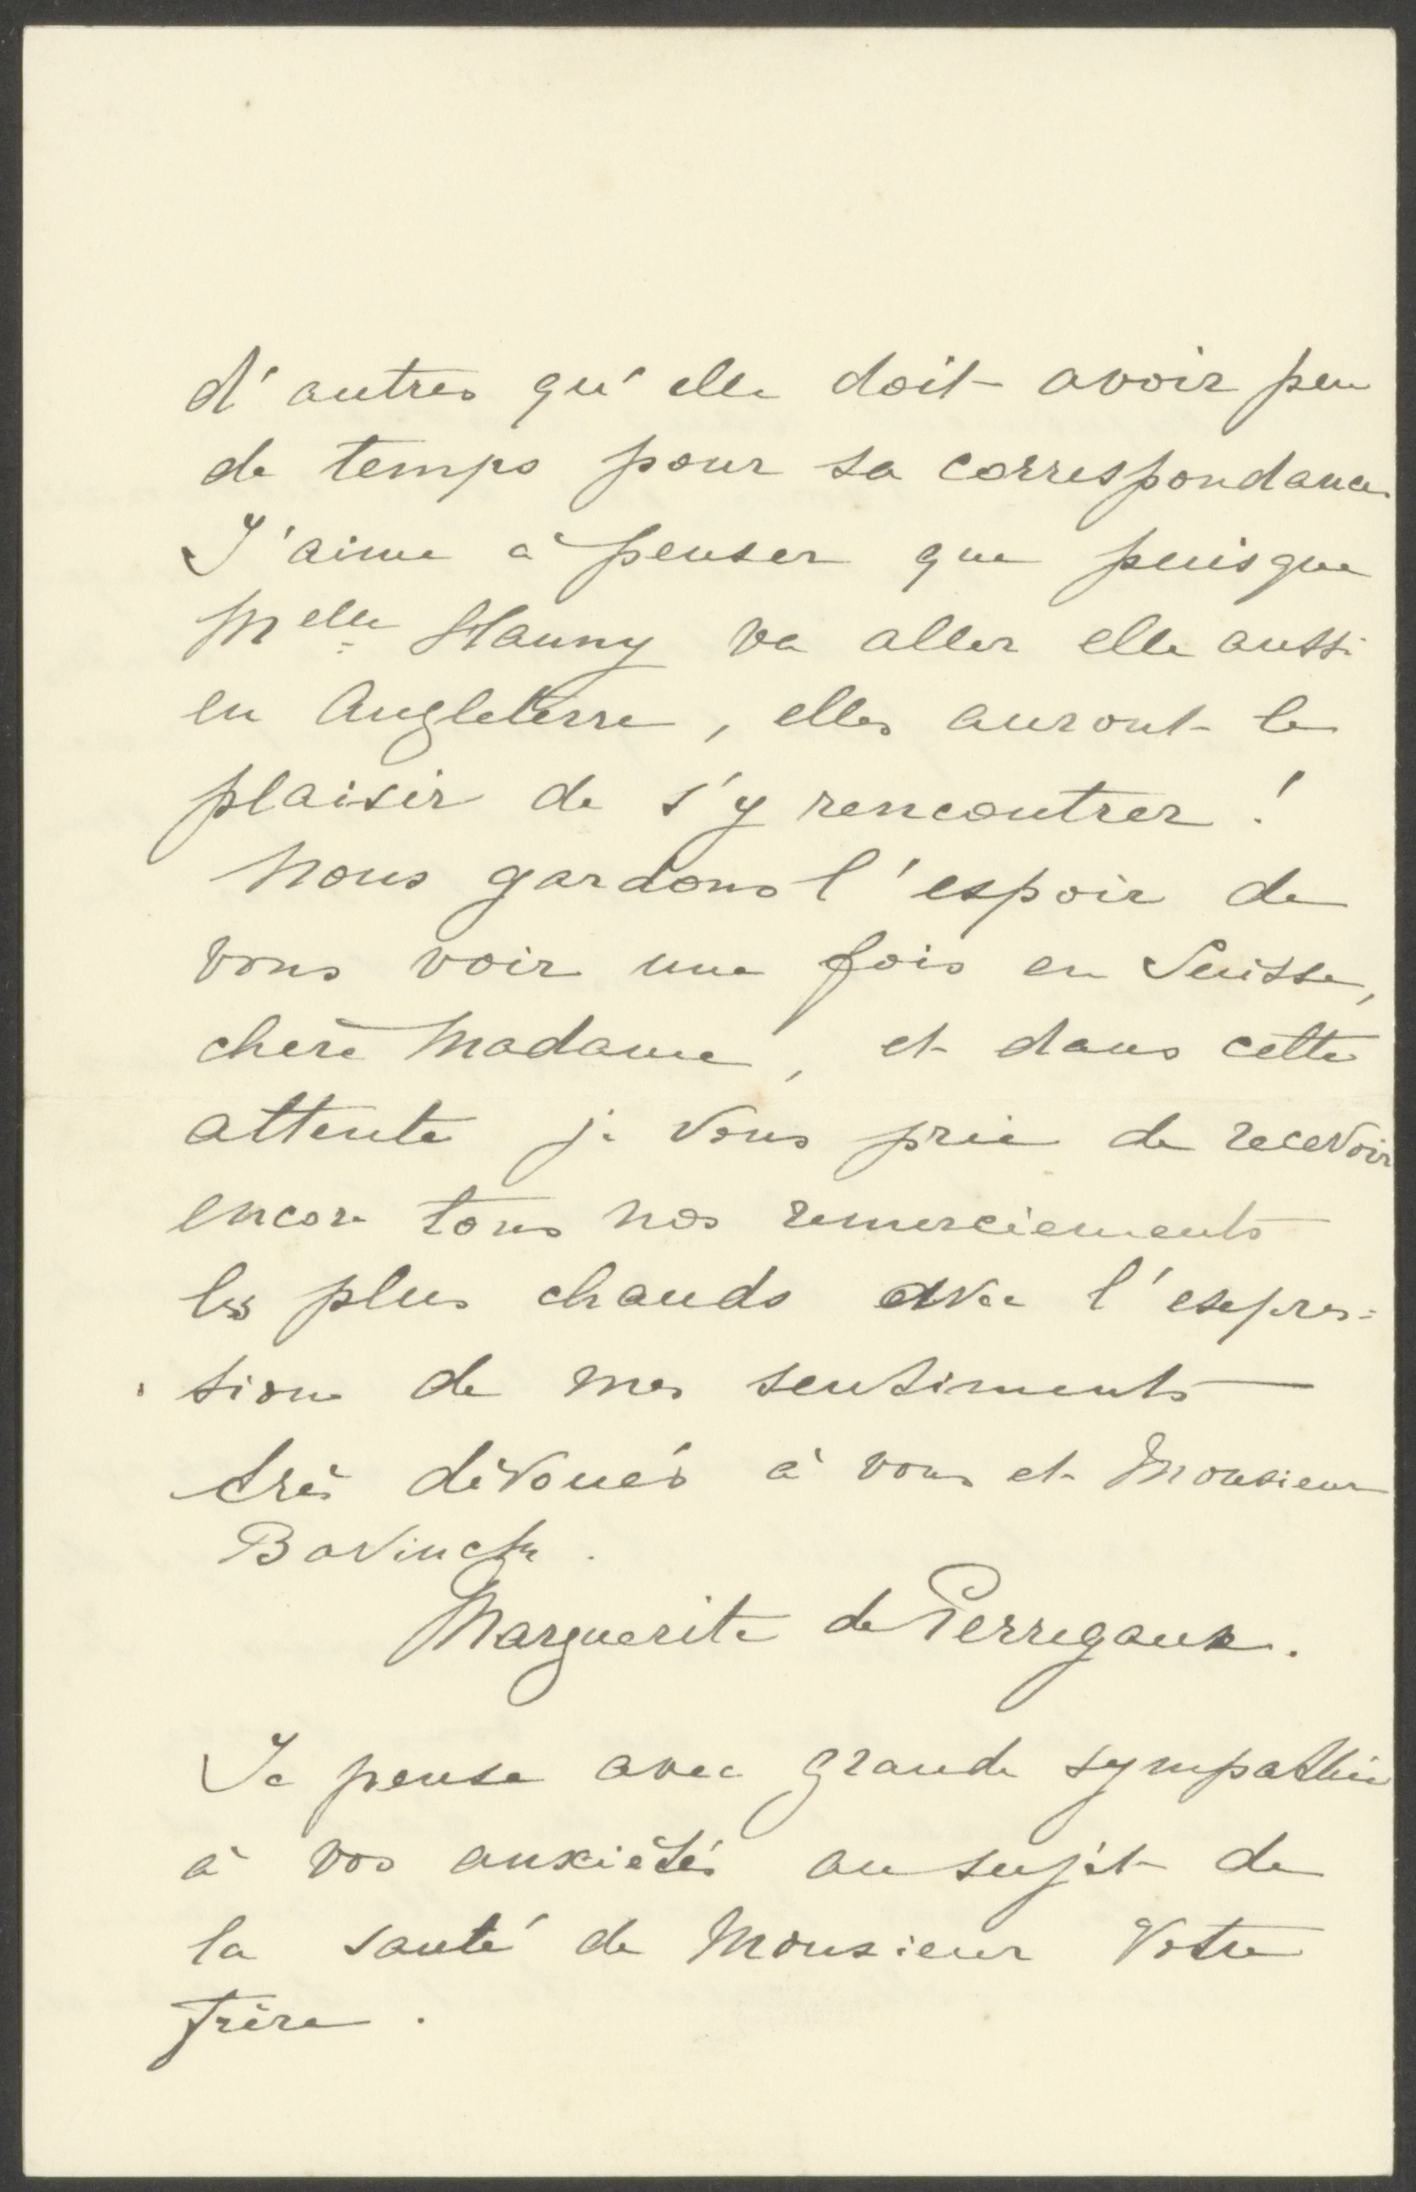 d'autres qu'elle doit avoir peu
de temps pour sa correspondance
J'aime à penser que puisque
Melle Hanny va aller elle aussi
en Angleterre, elles auront le
plaisir de s'y rencontrer !
Nous gardons l'espoir de
vous voir une fois en Suisse,
chère Madame, et dans cette
attente je vous prie de recevoir
encore tous nos remerciements
les plus chauds avec l'expres=
sion de mes sentiments
très dévoués à vous et Monsieur
Bavinck.
Marguerite de Perregaux.
Je pense avec grande sympathie
à vos anxiétés au sujet de
la santé de Monsieur Votre
frère.